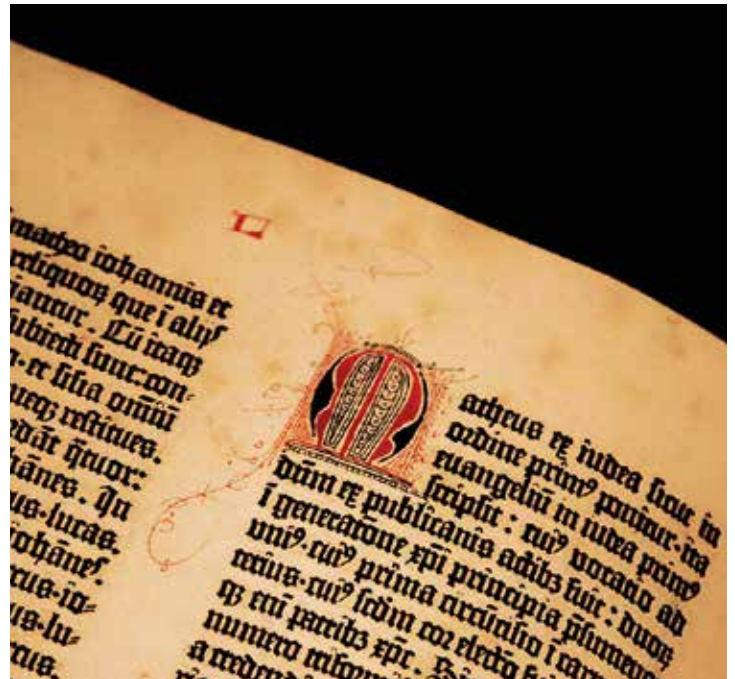 L
matheo iohannis et
reliquoꝝ que ī alijs
Cū itaqꝫ
subiecti sunt:con-
et filia omniū
restitues.
q̄tuor:
hānes. In
us·lucas.
iohānes
cus·io=
us·lu=
cus.
Matheus ex iudea sicut in
ordine primꝰ ponitur·ita
euangeliū in iudea primꝰ
scripsit : cuiꝰ vocatio ad
dn̄m ex publicanis actibꝫ fuit : duoꝝ
ī generatōne xp̄i principia p̄sumens
vniꝰ·cuiꝰ prima circūcisio ī carne
cuiꝰ scd̄m cor electō
qꝫ enī patribꝫ xp̄c.
numero
a credendi